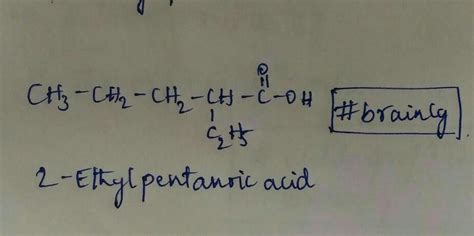 O
CH3-CH2-CH2-CH-C-OH
C2H5
#brainlg
2-Ethylpentanoic acid